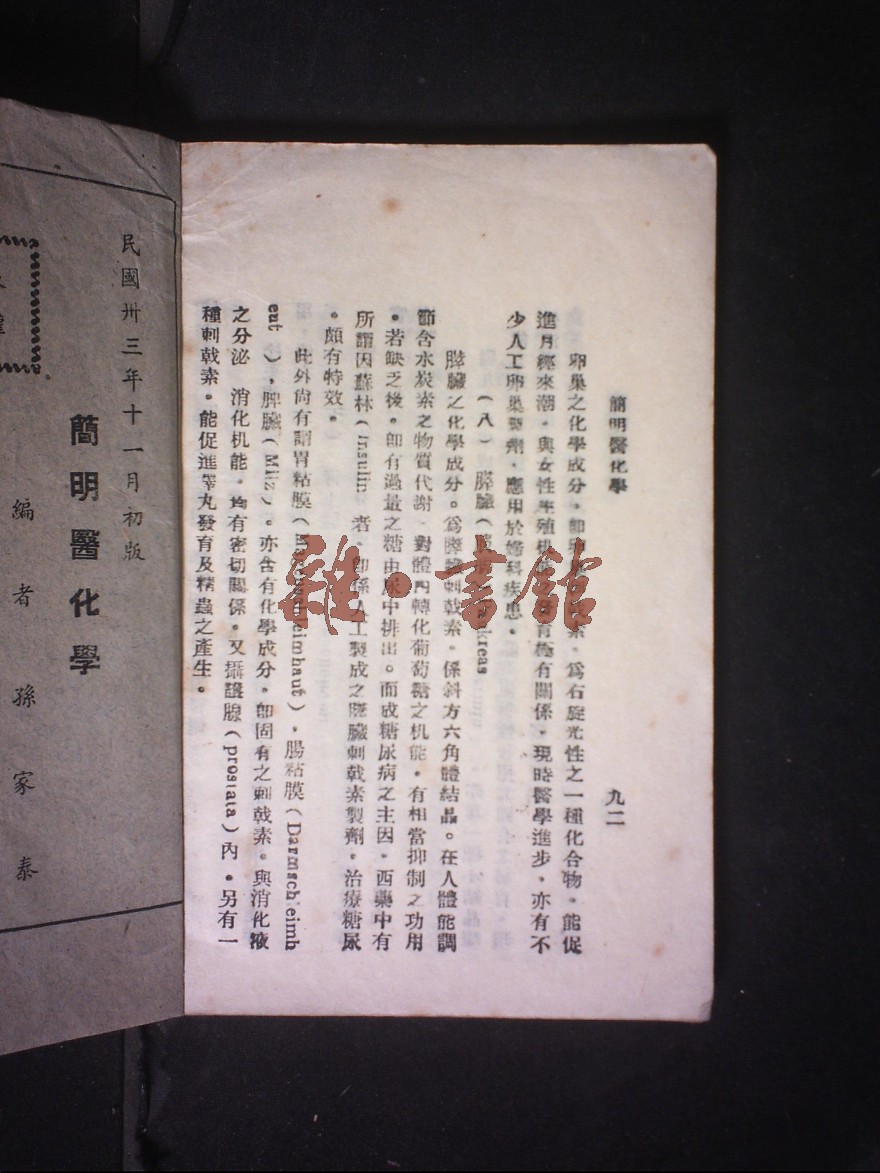 簡明醫化學
九二
卵巢之化學成分，卽卵巢素，爲右旋光性之一種化合物。能促
進月經來潮，與女性生殖機育極有關係，現時醫學進步，亦有不
少人工卵巢製劑，應用於婦科疾患。
（八）膵臟（kreas
膵臟之化學成分。爲膵臟刺戟素，係斜方六角體結晶。在人體能調
節含水炭素之物質代謝，對體內轉化葡萄糖之机能，有相當抑制之功用
。若缺乏後，卽有過量之糖由尿中排出。而成糖尿病之主因，西藥中有
所謂因蘇林（Insulin 者，卽係人工製成之膵臟刺戟素製劑。治療糖尿
。頗有特效。
此外尚有謂胃粘膜（Magenschleimhaut），腸粘膜（Darmschleimh
aut），脾臟（Milz）。亦含有化學成分。卽固有之刺戟素。與消化液
之分泌 消化机能，均有密切關係。又攝護腺（prostata）內，另有一
種刺戟素。能促進睪丸發育及精蟲之產生。
雜·書館
民國卅三年十一月初版
簡明醫化學
編者孫家泰